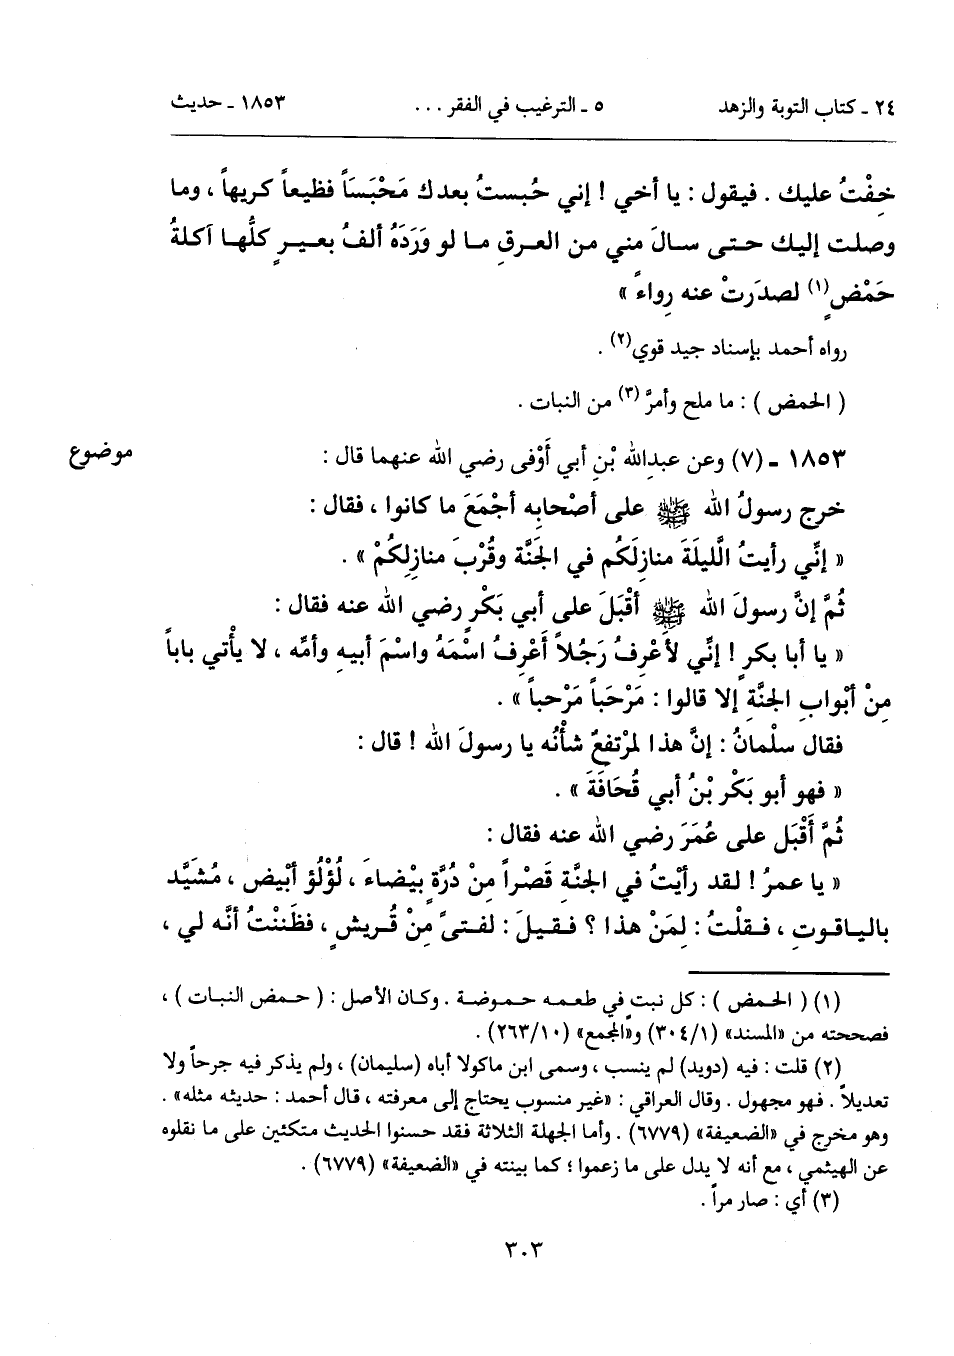 ٢٤ ـ كتاب التوبة والزهد ٥ ـ الترغيب في الفقر . . . ١٨٥٣ ـ حديث
خِفْتُ عليك . فيقول : يا أخي ! إني حُبستُ بعدك مَحْبَسَاً فظيعاً كريهاً ، وما
وصلت إليك حـتـى سـالَ مني مـن العـرقِ مـا لو وَرَدَهُ ألفُ بعيـرٍ كلُّهـا آكلةُ
حَمْضٍ(١) لصدَرتْ عنه رِواءً »
رواه أحمد بإسناد جيد قوي(٢) .
( الحمض ) : ما ملح وأمرَّ (٣) من النبات .
١٨٥٣ ـ (٧) وعن عبدِالله بْنِ أبي أَوْفى رضي الله عنهما قال : موضوع
خرج رسولُ الله ﷺ على أصْحابِه أجْمَعَ ما كانوا ، فقال :
« إنِّي رأيتُ الَّليلَةَ منازلَكُم في الجَنَّة وقُرْبَ منازِلِكُمْ » .
ثُمَّ إنَّ رسولَ الله ﷺ أقْبَلَ على أبي بَكْرٍ رضي الله عنه فقال :
« يا أبا بكرٍ ! إنِّي لأعْرِفُ رَجُلاً أَعْرِفُ اسْمَهُ واسْمَ أبيهِ وأمِّه ، لا يأْتي باباً
مِنْ أبْوابِ الجنَّةِ إلا قالوا : مَرْحَباً مَرْحباً » .
فقال سلْمانُ : إنَّ هذا لمرْتفعٌ شأْنُه يا رسولَ الله ! قال :
« فهو أبو بَكْر بْنُ أبي قُحَافَةَ » .
ثُمَّ أَقْبَل على عُمَرَ رضي الله عنه فقال :
« يا عمرُ ! لقد رأيْتُ في الجنَّةِ قَصْراً مِنْ دُرَّةٍ بيْضاءَ ، لُؤْلُؤ أبْيض ، مُشَيَّد
بالياقوتِ ، فـقلْتُ : لِمَنْ هذا ؟ فـقيلَ : لفـتىً مِنْ قُريشٍ ، فظَننْتُ أنَّه لي ،
(١) ( الحمض ) : كل نبت في طعمه حموضة . وكان الأصل : ( حمض النبات ) ،
فصححته من «المسند» (١/ ٣٠٤) و«المجمع» (١٠/ ٢٦٣) .
(٢) قلت : فيه (دويد) لم ينسب ، وسمى ابن ماكولا أباه (سليمان) ، ولم يذكر فيه جرحاً ولا
تعديلاً . فهو مجهول . وقال العراقي : «غير منسوب يحتاج إلى معرفته ، قال أحمد : حديثه مثله» .
وهو مخرج في «الضعيفة» (٦٧٧٩) . وأما الجهلة الثلاثة فقد حسنوا الحديث متكئين على ما نقلوه
عن الهيثمي ، مع أنه لا يدل على ما زعموا ؛ كما بينته في «الضعيفة» (٦٧٧٩) .
(٣) أي : صار مراً .
٣٠٣